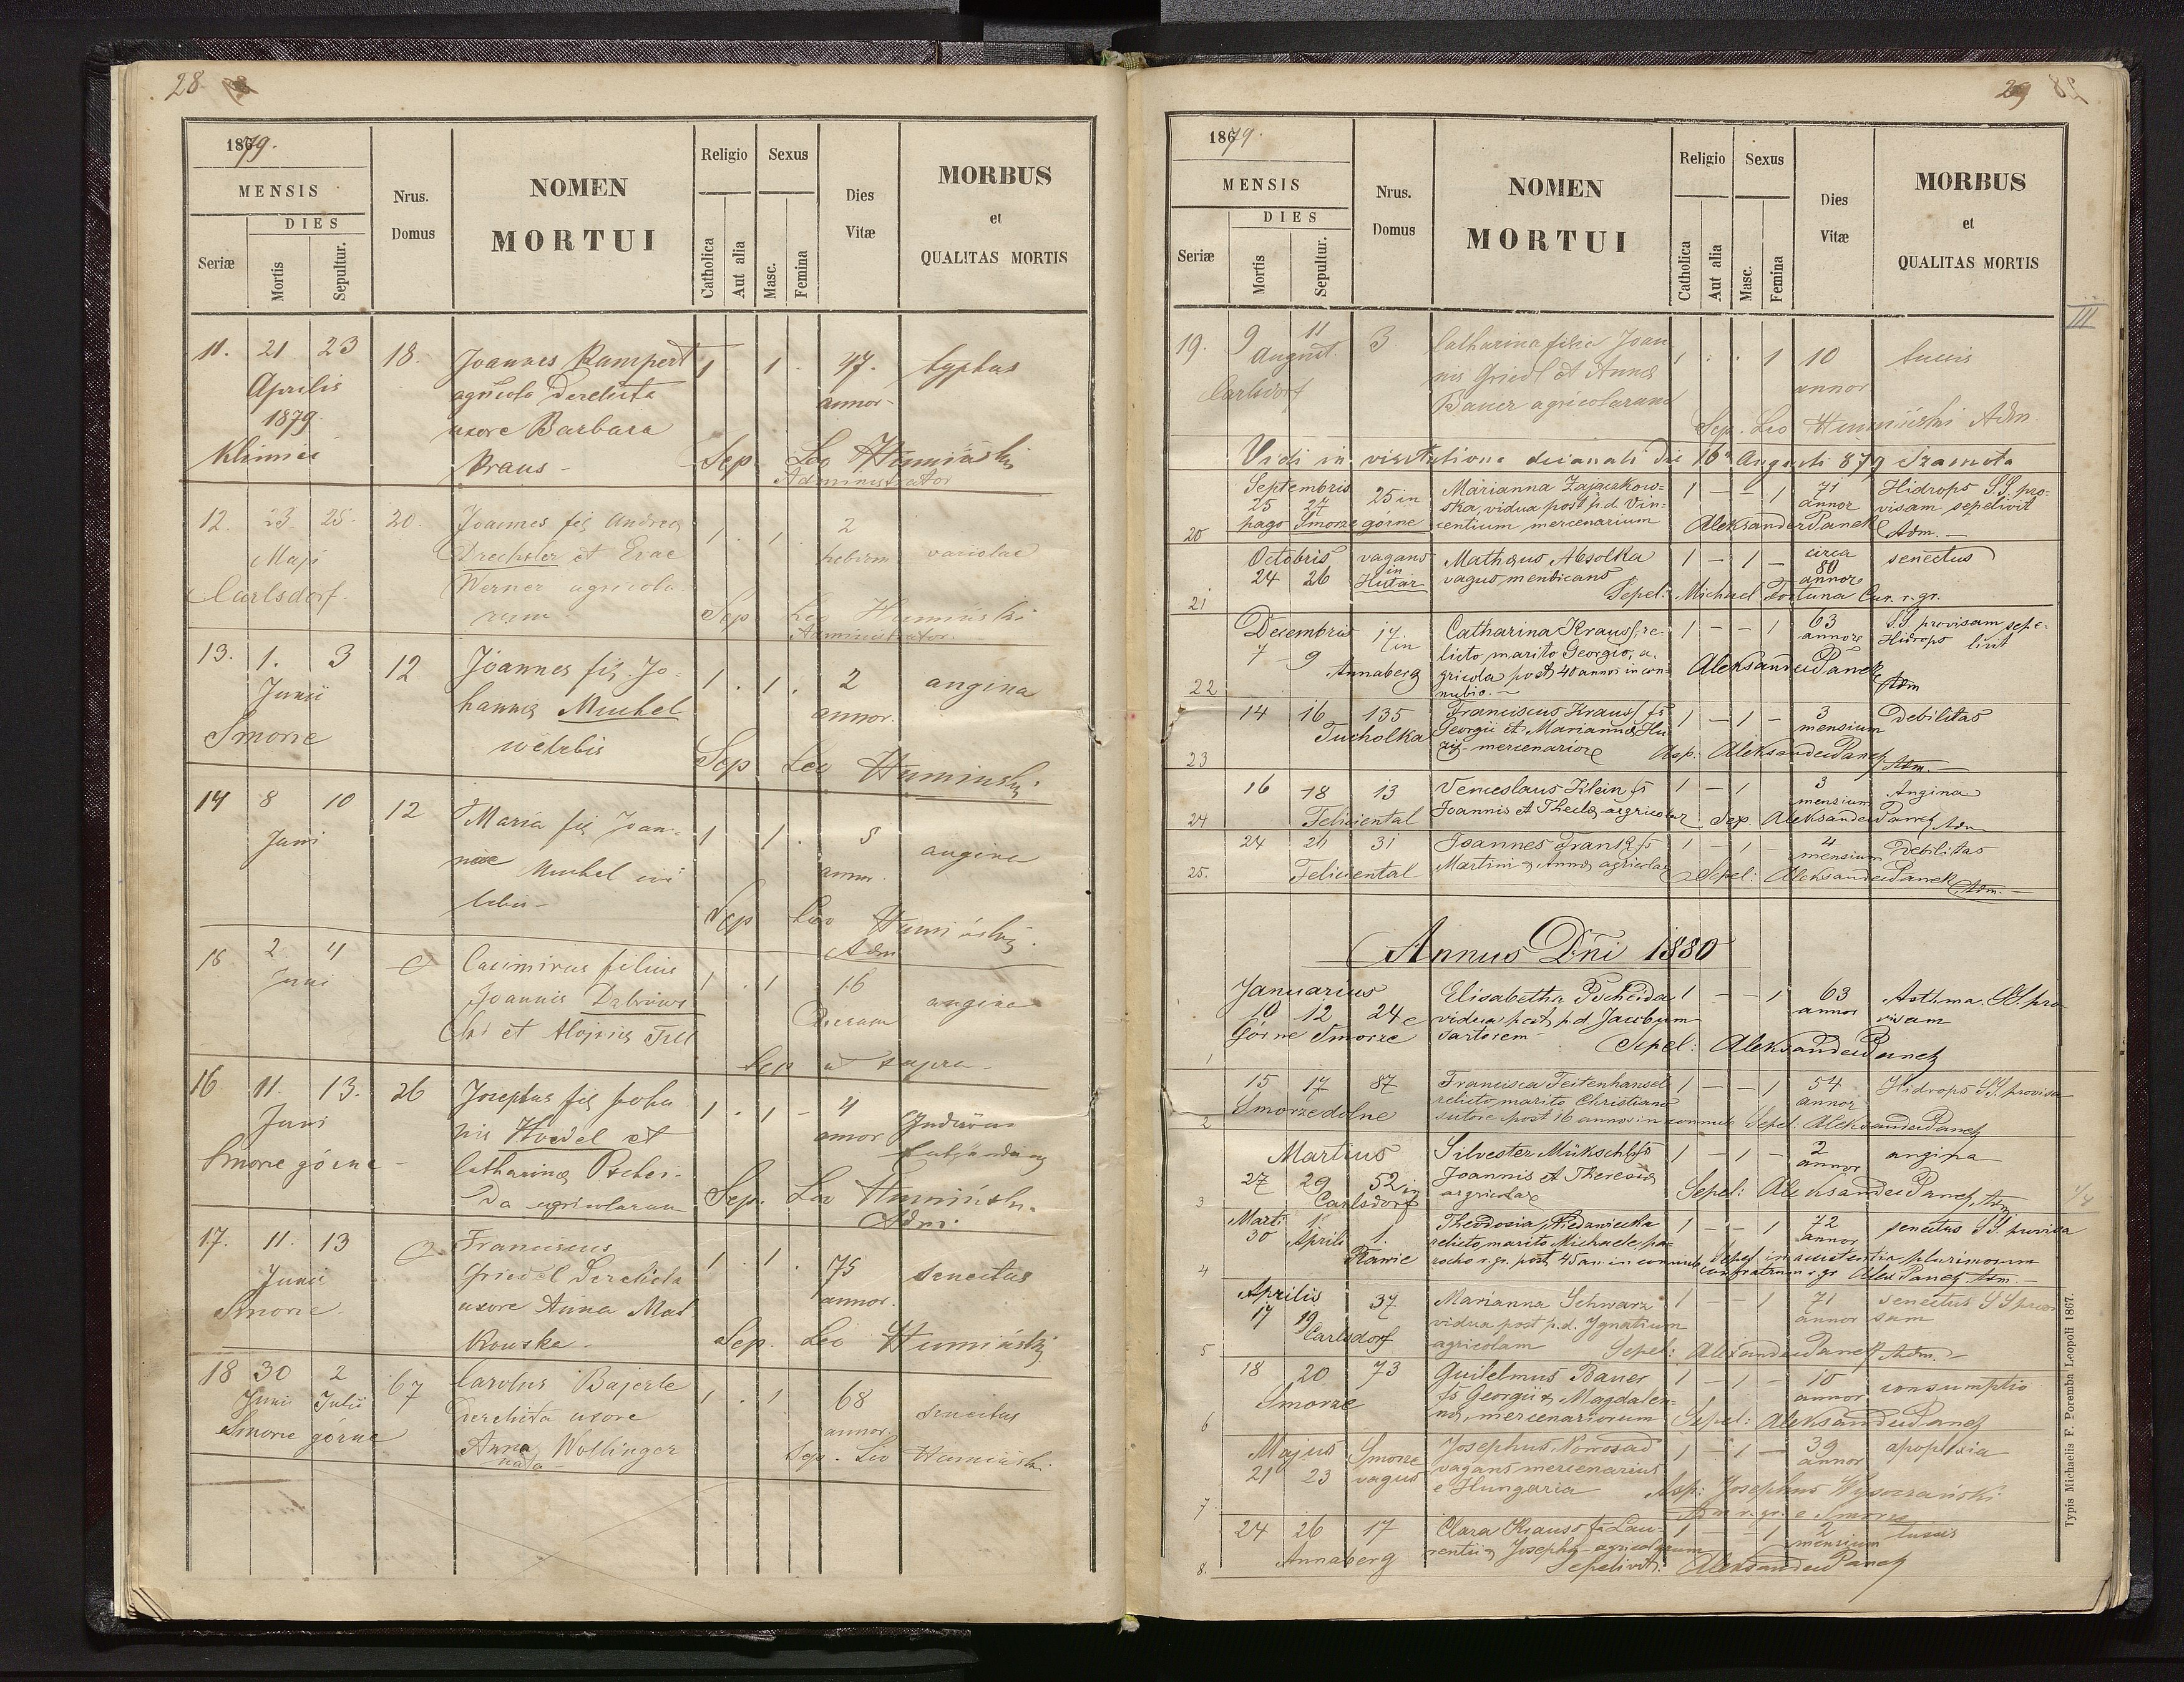 28
1879.
MENSIS
DIES
Seriæ
Mortis
Sepultur.
Nrus.
Domus
NOMEN
MORTUI
Religio
Catholica
Aut alia
Sexus
Masc.
Femina
Dies
Vitæ
MORBUS
et
QUALITAS MORTIS
11. 21 23 18. Joannes Rampert 1 . 1 . 47. typhus
Aprilis agricola derelicta annor.
1879 uxore Barbara
Klimiec Kraus - Sep Leo Humiński
Administrator
12. 23. 25. 20. Joannes fis Andreæ 1 . 1 . 2
Maji Drechsler et Evae hebdm variolae
Carlsdorf. Werner agricola-
rum Sep Leo Humiński
Administrator.
13. 1. 3 12 Joannes fis. Jo- 1 . 1 . 2 angina
Junii hannis Muchel annor.
Smorze Sep Leo Humiński
14 8 10 12 Maria fis Joan- 1 . 1 . 5 angina
Juni nis Muchel annor.
Sep Leo Humiński.
Adm
15 2 4 Casimirus filius 1 . 1 16 angina
Juni Joannis Dabrows
ki et Aloysia Till Dierum
Sep ut supra.
16 11. 13. 26 Josephus fis Joha 1 . 1 - 4
Juni nis Hoedel et annor
Smorze górne - Catharina Pschei-
da agricolarum Sep. Leo Humiński.
Adm.
17. 11. 13 Franciscus 1 . 1 . 75 senectus
Junii Griedel derelicta annor.
Smorze. uxore Anna Mal
kouska - Sep. Leo Humiński
18 30 2 67 Carolus Bajerle 1 . 1 68 senectus
Juni Julii derelicta uxore annor.
Smorze górne Anna Wollinger
nata Sep. Leo Humiński.
29
1879.
MENSIS
DIES
Seriæ
Mortis
Sepultur.
Nrus.
Domus
NOMEN
MORTUI
Religio
Catholica
Aut alia
Sexus
Masc.
Femina
Dies
Vitæ
MORBUS
et
QUALITAS MORTIS
III
19. 9 11 3 Catharina filia Joan 1 . . 1 10 tussis
August. nis Griedl et Anna annor
Carlsdorf Bauer agricolarum
Sep. Leo Humiński Adm.
Vidi in visitatione decanali die 16a Augusti 879
Septembris 25 in Marianna Zajaczkow- 1 - - 1 71 Hidrops SS. pro-
25 27 ska, vidua post p.d. Vin- annor visam sepelivit
20 pago Smorze górne centium mercenarium Aleksander Panek Adm. -
Octobris vagans Mathæus Absolka 1 - 1 - circa senectus
24 26 in Hutar vagus mendicans 80 annor
21 Sepel: Michael Fortuna Cur. r. gr.
Decembris 17. Catharina Krauss, re- 1 - - 1 63 SS provisam sepe-
7 9 in licto marito Georgio, a- annor Hidrops livit
Annaberg gricola post 40 annor in con Aleksander Panek
22 nubio. - Adm
14 16 135 Franciscus Krauss fs 1 - 1 - 3 Debilitas
Tucholka Georgii et Marianna mensium
23 mercenarior Sep: Aleksander Panek Adm. -
16 18 13 Venceslaus Klein fs 1 - 1 3 Angina
mensium
24 Feliciental Joannis et Thecla agricolar Sep. Aleksander Panek Adm
24 26 31 Joannes Frank fs 1 - 1 - 4 Debilitas
mensium
25. Feliciental Martini & Anna agricolar Sepel: Aleksander Panek Adm. -
Annus Dñi 1880
Januarius Elisabetha Pscheida 1 - - 1 63 Asthma. SS. pro
10 12 24 vidua post p.d. Jacobum annor visam
1 Górne Smorze sartorem Sepel: Aleksander Panek
15 17 87 Francisca Teitenhansel 1 - - 1 54 Hidrops SS. provisa
Smorze dolne relicto marito Christiano annor
2 sutore post 16 annos in connub Sepel: Aleksander Panek
Martius Silvester Mükschl fs 1 - 1 - 2 angina
27 29 52 in Joannis et Theresia annor
3 Carlsdorf agricolar Sepel: Aleksander Panek Adm
Marti 1. Theodosia 1 - - 1 72 senectus SS. provisa
30 Aprili 1. relicto marito Michaele, pa- annor
4 Plawie rocho r. gr. post 45 an. in connub Sepel in assistentia plurimorum
confratrum r. gr. Alex Panek Adm. -
Aprilis 37 Marianna Schwarz 1 - 1 71 senectus SS provi
17 19 vidua post p.d. Ignatium annor sam
5 Carlsdorf agricolam Sepel: Alexander Panek Adm. -
18 20 73 Guilelmus Bauer 1 - 1 - 10 consumptio
Smorze fs Georgii & Magdalen- annor
6 na, mercenariorum Sepel: Aleksander Panek
Majus Smorze Josephus Nowosad 1 - 1 - 39 apoplexia
21 23 vagus vagans mercenarius annor
7 e Hungaria Sep: Josephus Wysoczański
r. gr. e Smorze
24 26 17 Clara Krauss fa Lau- 1 - 1 2 tussis
Annaberg rentii & Josepha agricolarum mensium
8. Sepelivit: Aleksander Panek
Typis Michaelis F. Poremba Leopoli 1867.